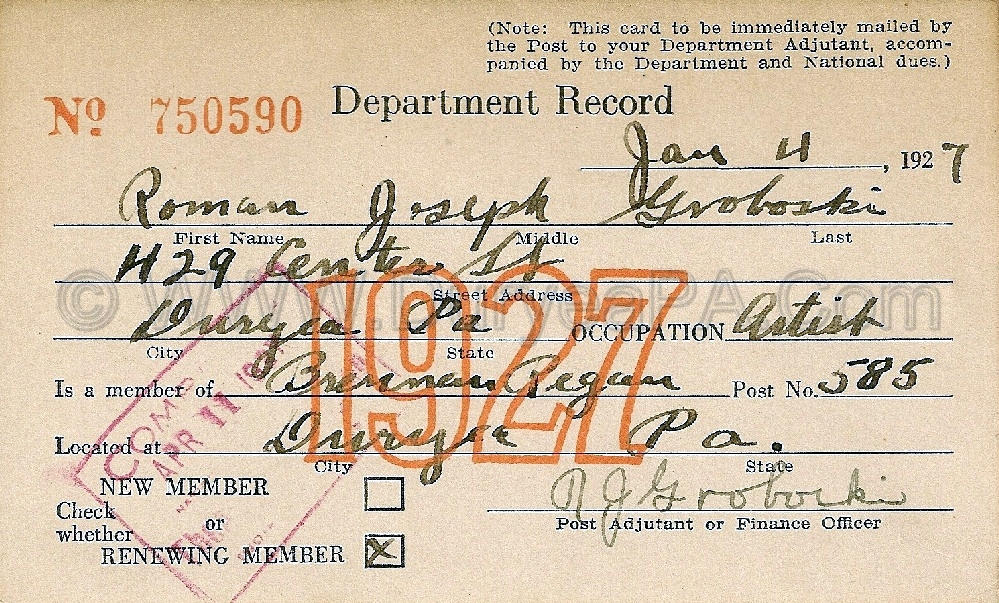 (Note: This card to be immediately mailed by
the Post to your Department Adjutant, accom-
panied by the Department and National dues.)
No. 750590 Department Record
Jan 4, 1927
Roman Joseph Groboski
First Name Middle Last
429 Center St
Street Address
© WWW.DuryeaPA.Com
Duryea Pa OCCUPATION Artist
City State
1927
Is a member of Brennan Regan Post No. 585
Located at Duryea Pa.
City State
APR 11
NEW MEMBER
Check
whether
or
RENEWING MEMBER X
R J Groboski
Post Adjutant or Finance Officer